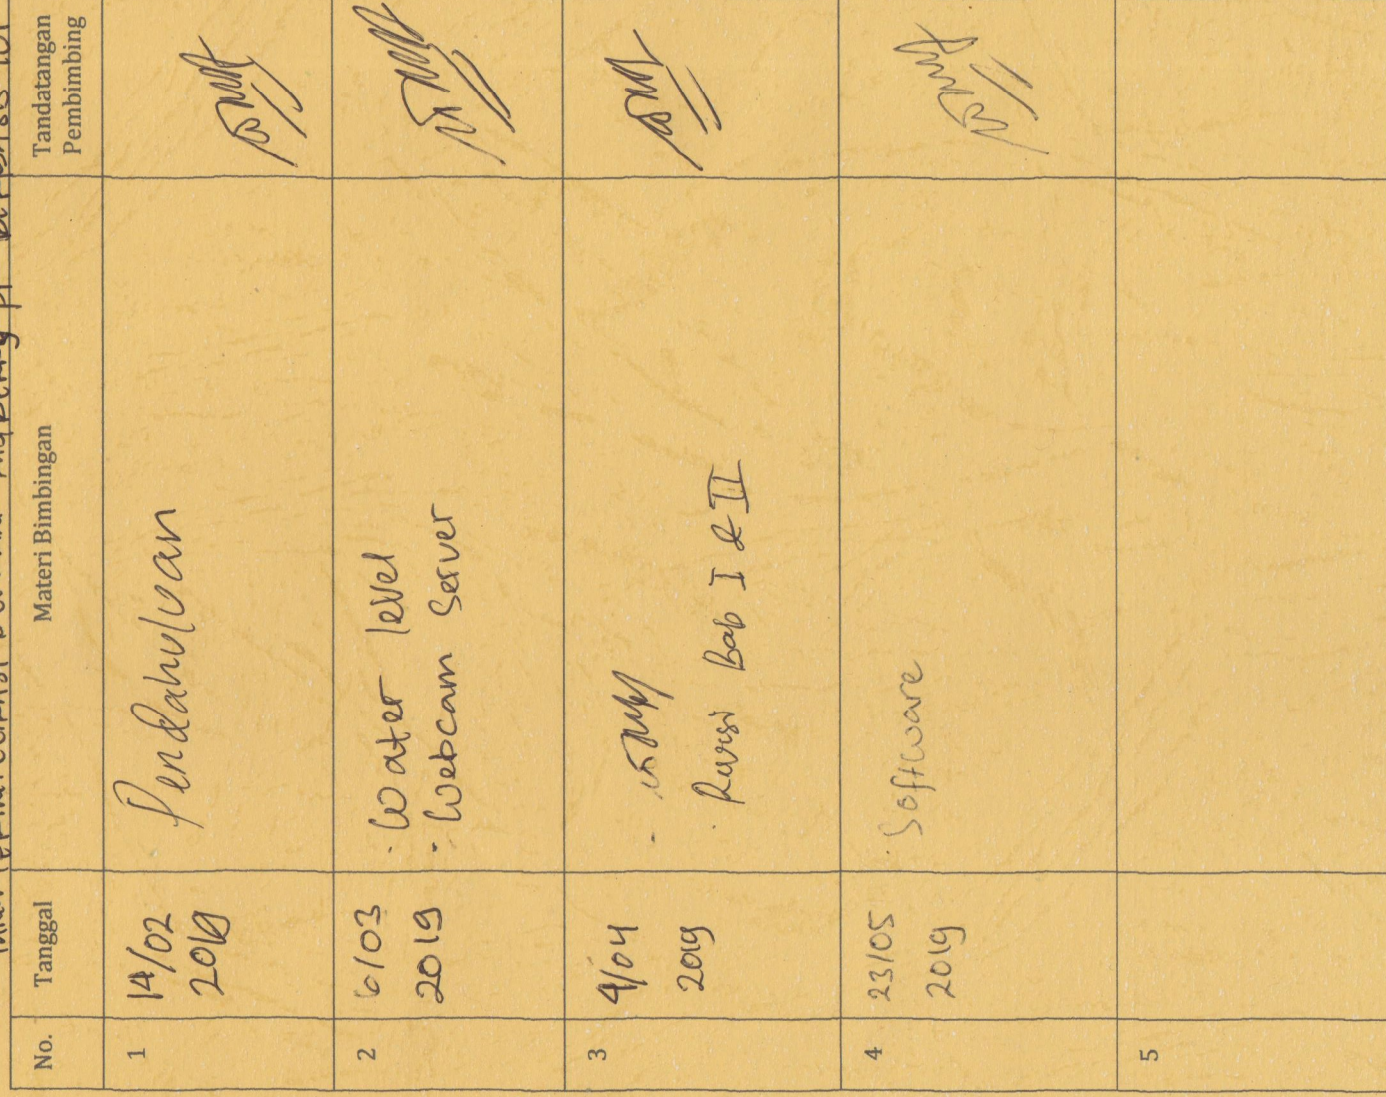 No.
Tanggal
Materi Bimbingan
Tandatangan
Pembimbing
1
14/02
2019
Pendahuluan
2
6/03
2019
- Water level
- Webcam Server
3
4/04
2019
-
. Revisi Bab I & II
4
23/05
2019
. Software
5